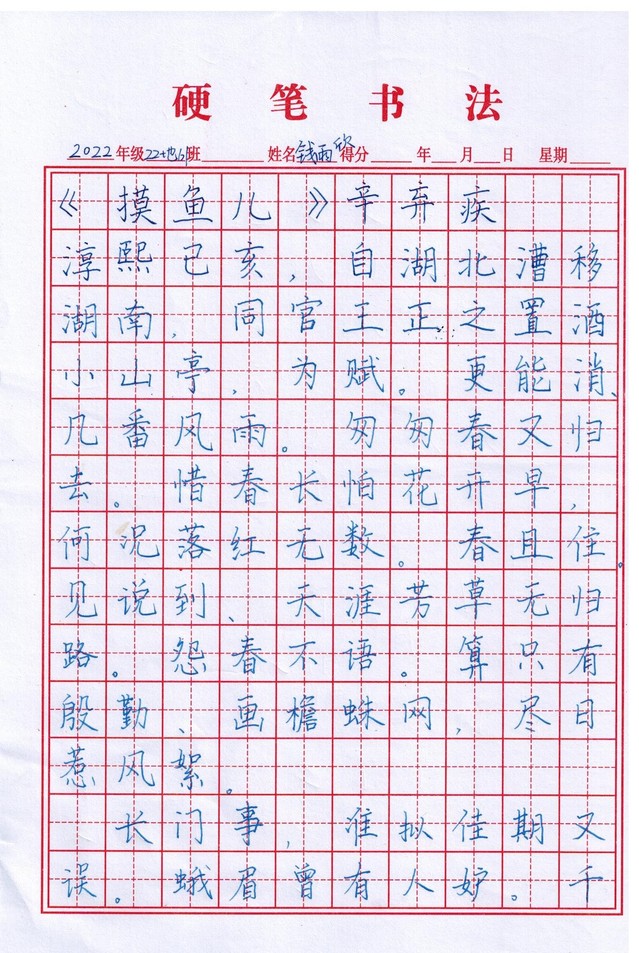 硬笔书法
2022年级22+电(5)班 姓名钱雨欣 得分 年 月 日 星期
《摸鱼儿》辛弃疾
淳熙已亥，自湖北漕移
湖南，同官王正之置酒
小山亭，为赋。更能消、
几番风雨。匆匆春又归
去。惜春长怕花开早，
何况落红无数。春且住。
见说到、天涯芳草无归
路。怨春不语。算只有
殷勤、画檐蛛网，尽日
惹风絮。
长门事，准拟佳期又
误。蛾眉曾有人妒。千